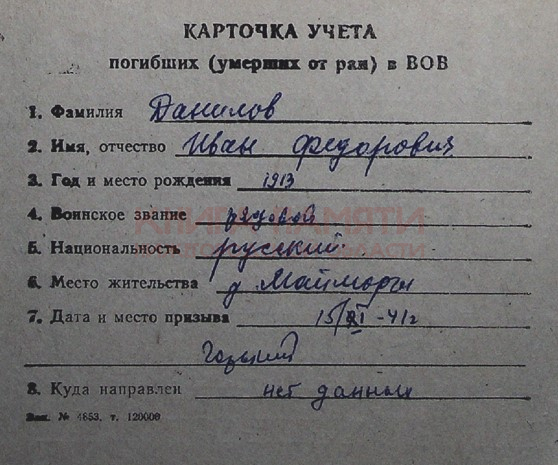 КАРТОЧКА УЧЕТА
погибших (умерших от ран) в ВОВ
1. Фамилия Данилов
2. Имя, отчество Иван Федорович
3. Год и место рождения 1913
4. Воинское звание рядовой
КНИГА ПАМЯТИ
5. Национальность русский
ОБЛАСТИ
6. Место жительства д. Майморы
7. Дата и место призыва 15/XI-41г
8. Куда направлен нет данных
Зак. № 4853, т. 120000